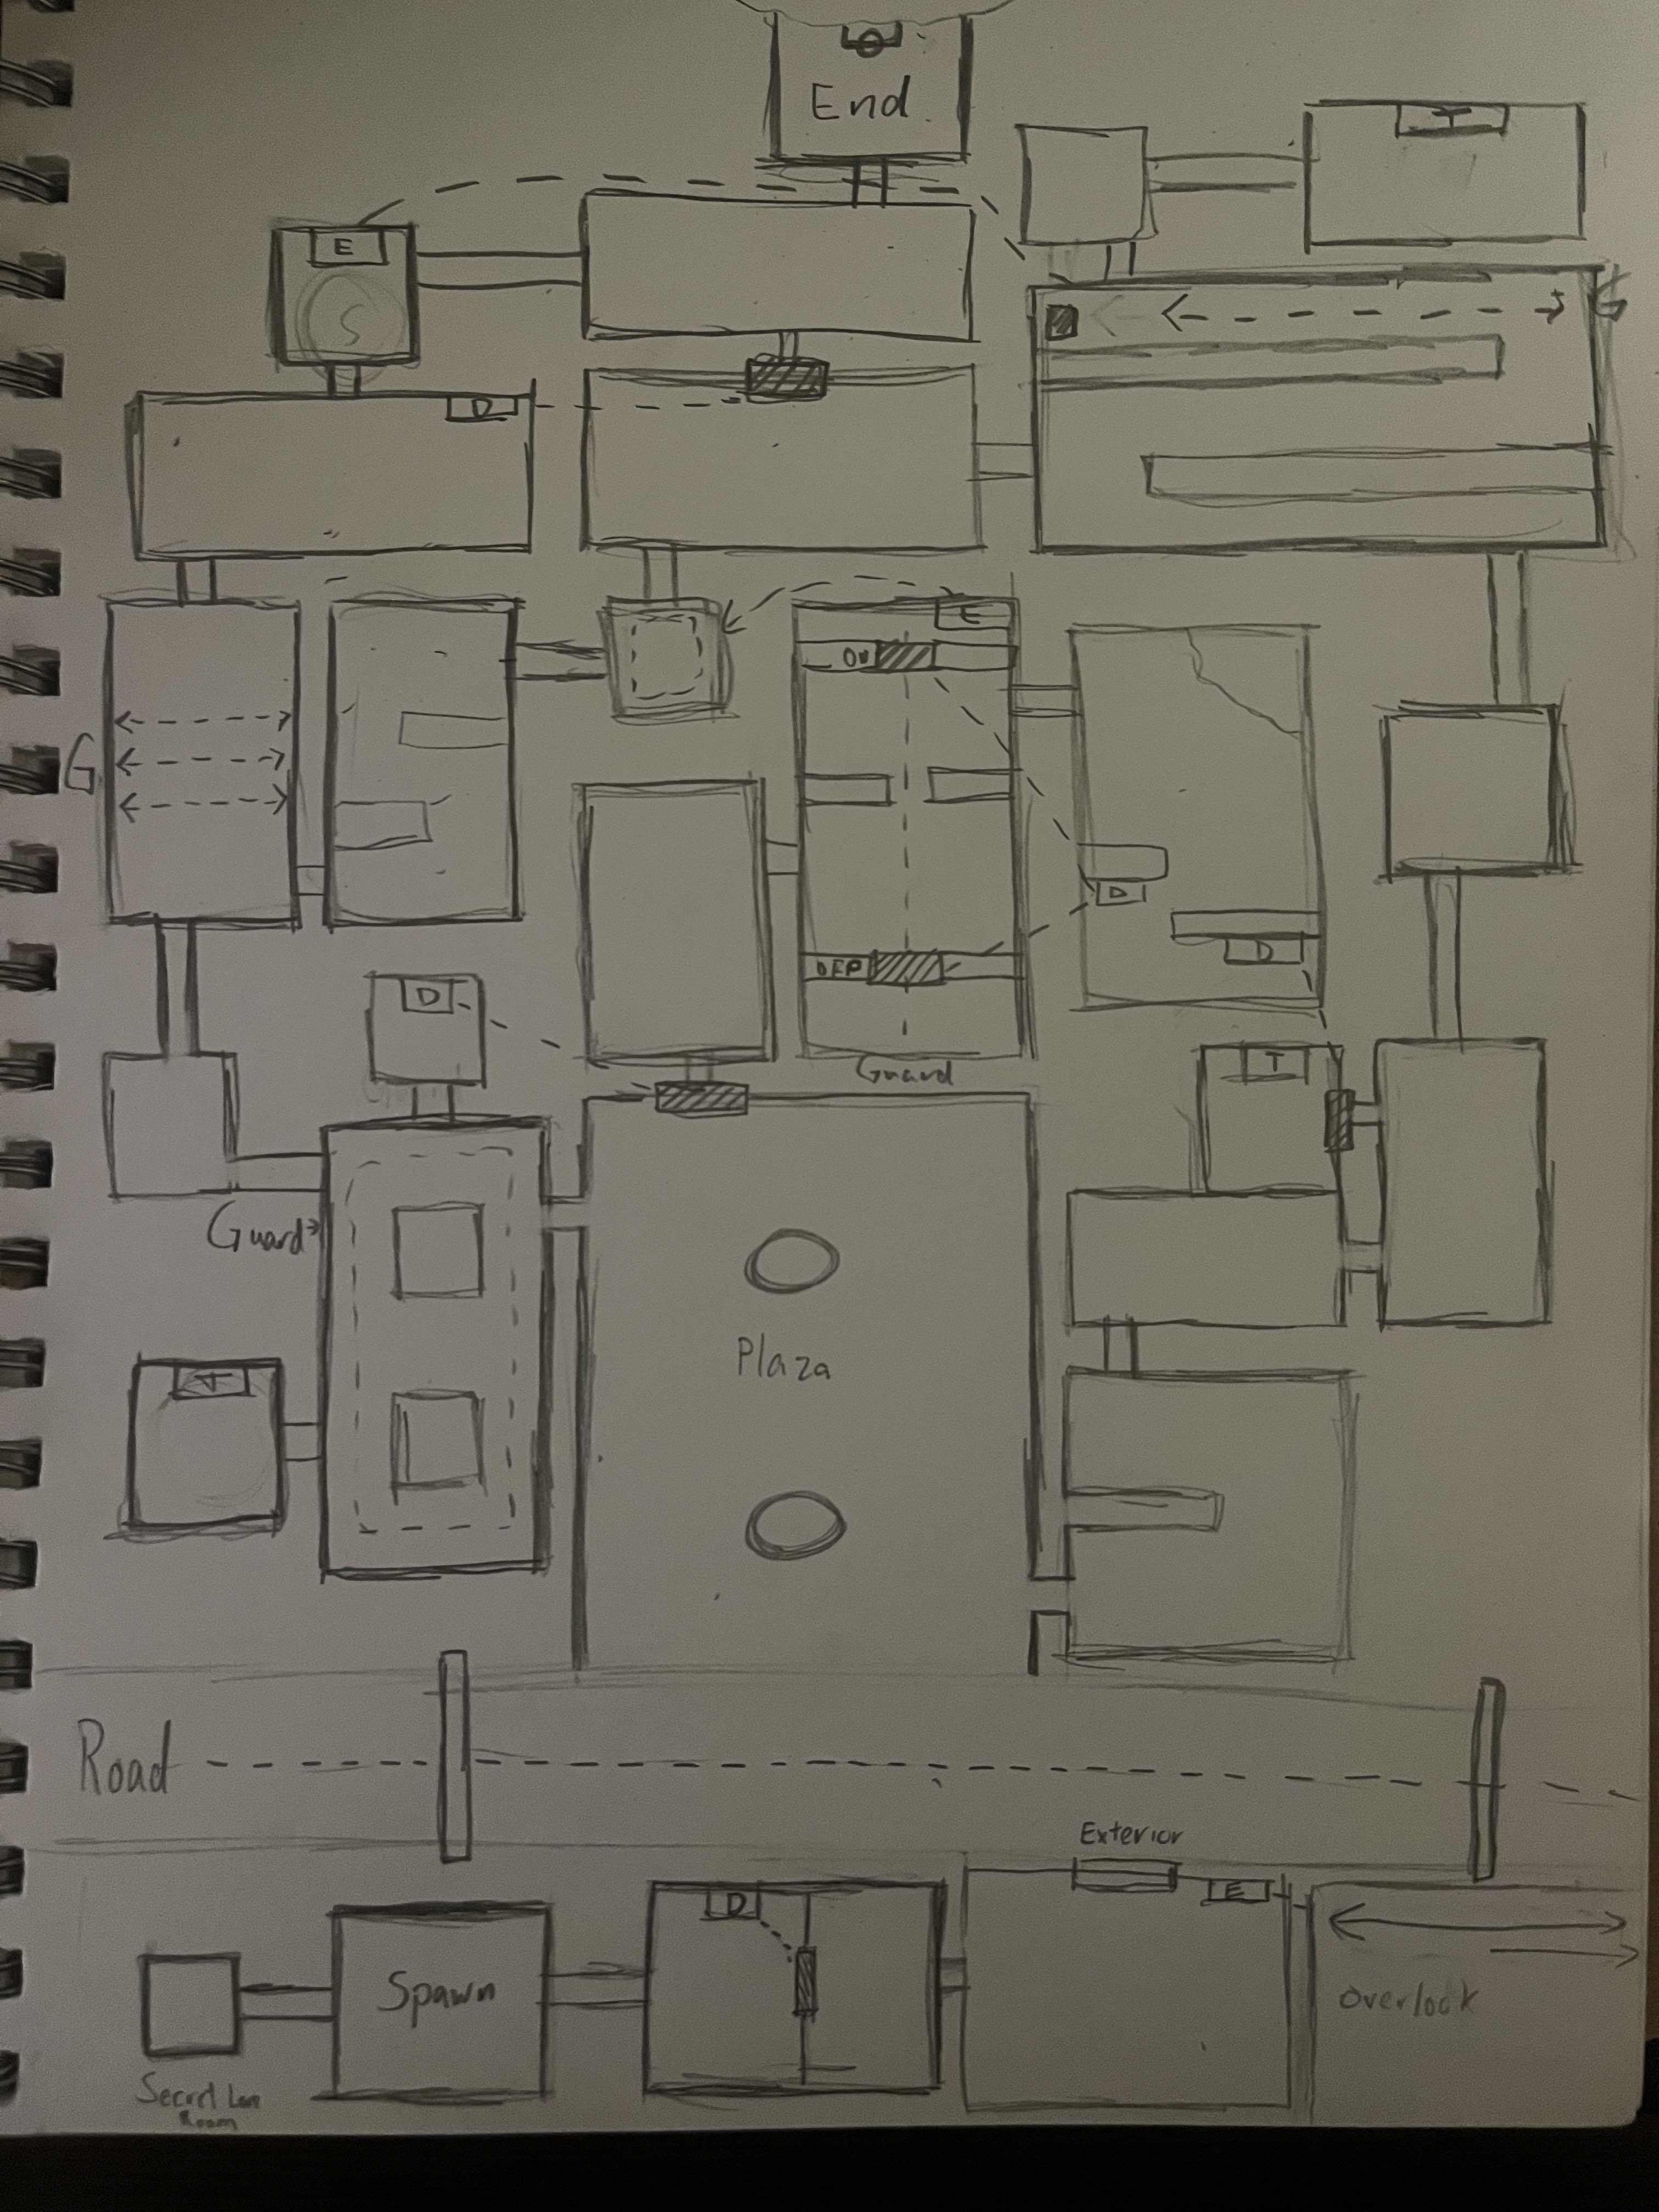 End
T
E
S
G
D
E
ON
G
D
DEP
D
D
Guard
T
Guard
Plaza
T
Road
Exterior
D
E
Spawn
Overlook
Secret Lore
Room